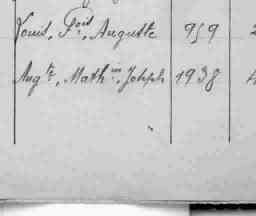 Louis, Fois, Auguste 959 2
Augte, Mathin, Joseph 1938